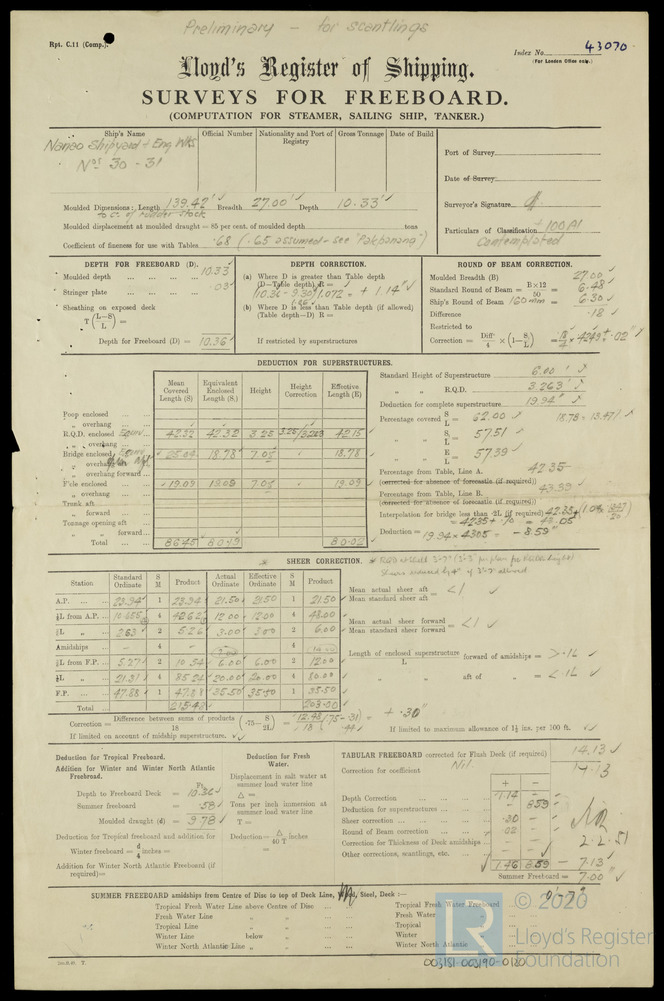 Preliminary - for scantlings
Rpt. C.11 (Comp.).
Index No. 43070
(For London Office only.)
Lloyd's Register of Shipping.
SURVEYS FOR FREEBOARD.
(COMPUTATION FOR STEAMER, SAILING SHIP, TANKER.)
Ship's Name Official Number Nationality and Port of Registry Gross Tonnage Date of Build
Shipyard & Eng. Wks
Nos 30 - 31
Port of Survey
Date of Survey
Surveyor's Signature
Particulars of Classification +100A1
Contemplated
Moulded Dimensions: Length 139.42' Breadth 27.00' Depth 10.33'
to C. of rudder stock
Moulded displacement at moulded draught = 85 per cent. of moulded depth tons
Coefficient of fineness for use with Tables .68 (.65 assumed - see "Palebanang")
DEPTH FOR FREEBOARD (D).
Moulded depth 10.33
Stringer plate .03
Sheathing on exposed deck
T (L-S/L) =
Depth for Freeboard (D) = 10.36
DEPTH CORRECTION.
(a) Where D is greater than Table depth
(D-Table depth) R =
(10.36 - 9.30) 1.072 = + 1.14"
(b) Where D is less than Table depth (if allowed)
(Table depth-D) R =
If restricted by superstructures
ROUND OF BEAM CORRECTION.
Moulded Breadth (B) 27.00
Standard Round of Beam = B x 12/50 = 6.48
Ship's Round of Beam 160 = 6.30
Difference .18
Restricted to
Correction = Diff/4 x (1 - S₁/L) = .18/4 x .4249 = .02"
DEDUCTION FOR SUPERSTRUCTURES.
Mean Covered Length (S) Equivalent Enclosed Length (S₁) Height Height Correction Effective Length (E)
Poop enclosed
" overhang
R.Q.D. enclosed EQUIV. 42.32 42.32 3.25 3.25/3.263 42.15
" overhang
Bridge enclosed 25.04 18.78 7.05 18.78
" overhang aft
" overhang forward
F'cle enclosed 19.09 19.09 7.05 19.09
" overhang
Trunk aft
" forward
Tonnage opening aft
" " forward
Total 86.45 80.19 80.02
Standard Height of Superstructure 6.00'
" " R.Q.D. 3.263'
Deduction for complete superstructure 19.94"
Percentage covered S/L = 62.00 18.78 = 13.47%
" " S₁/L = 57.51
" " E/L = 57.39
Percentage from Table, Line A. 42.35
(corrected for absence of forecastle (if required))
Percentage from Table, Line B. 43.39
(corrected for absence of forecastle (if required))
Interpolation for bridge less than .2L (if required) 42.35 +
= 42.35 + .70 = 43.05
Deduction = 19.94 x 43.05 = - 8.59"
SHEER CORRECTION.
Station Standard Ordinate S M Product Actual Ordinate Effective Ordinate S M Product
A.P. 23.94 1 23.94 21.50 21.50 1 21.50
⅙L from A.P. 10.655 4 42.62 12.00 12.00 4 48.00
⅓L " 2.63 2 5.26 3.00 3.00 2 6.00
Amidships - 4 - 4
⅓L from F.P. 5.27 2 10.54 6.00 6.00 2 12.00
⅙L " 21.31 4 85.24 20.00 20.00 4 80.00
F.P. 47.88 1 47.88 35.50 35.50 1 35.50
Total 215.48 203.00
Mean actual sheer aft / Mean standard sheer aft = <1
Mean actual sheer forward / Mean standard sheer forward = <1
Length of enclosed superstructure / L forward of amidships = >.1L
" " aft of " = <.1L
Correction = Difference between sums of products / 18 (.75 - S/2L) = 12.48/18 (.75 - .31) = + .30"
If limited on account of midship superstructure.
If limited to maximum allowance of 1½ ins. per 100 ft.
Deduction for Tropical Freeboard.
Addition for Winter and Winter North Atlantic Freeboard.
Depth to Freeboard Deck = 10.36
Summer freeboard = .58
Moulded draught (d) = 9.78
Deduction for Tropical freeboard and addition for
Winter freeboard = d/4 inches =
Addition for Winter North Atlantic Freeboard (if required)=
Deduction for Fresh Water.
Displacement in salt water at summer load water line
Δ =
Tons per inch immersion at summer load water line
T =
Deduction = Δ/40 T inches
=
TABULAR FREEBOARD corrected for Flush Deck (if required) 14.13
Correction for coefficient Nil. 14.13
+ -
Depth Correction 1.14 -
Deduction for superstructures - 8.59
Sheer correction .30 -
Round of Beam correction .02 -
Correction for Thickness of Deck amidships - -
Other corrections, scantlings, etc. - -
1.46 8.59 - 7.13
Summer Freeboard = 7.00"
2.2.51
SUMMER FREEBOARD amidships from Centre of Disc to top of Deck Line, Wood, Steel, Deck :- 0'-7"
Tropical Fresh Water Line above Centre of Disc Tropical Fresh Water Freeboard
Fresh Water Line " " Fresh Water "
Tropical Line " " Tropical "
Winter Line below " Winter "
Winter North Atlantic Line " " Winter North Atlantic "
003181-003190-0180
© 2020
Lloyd's Register
Foundation